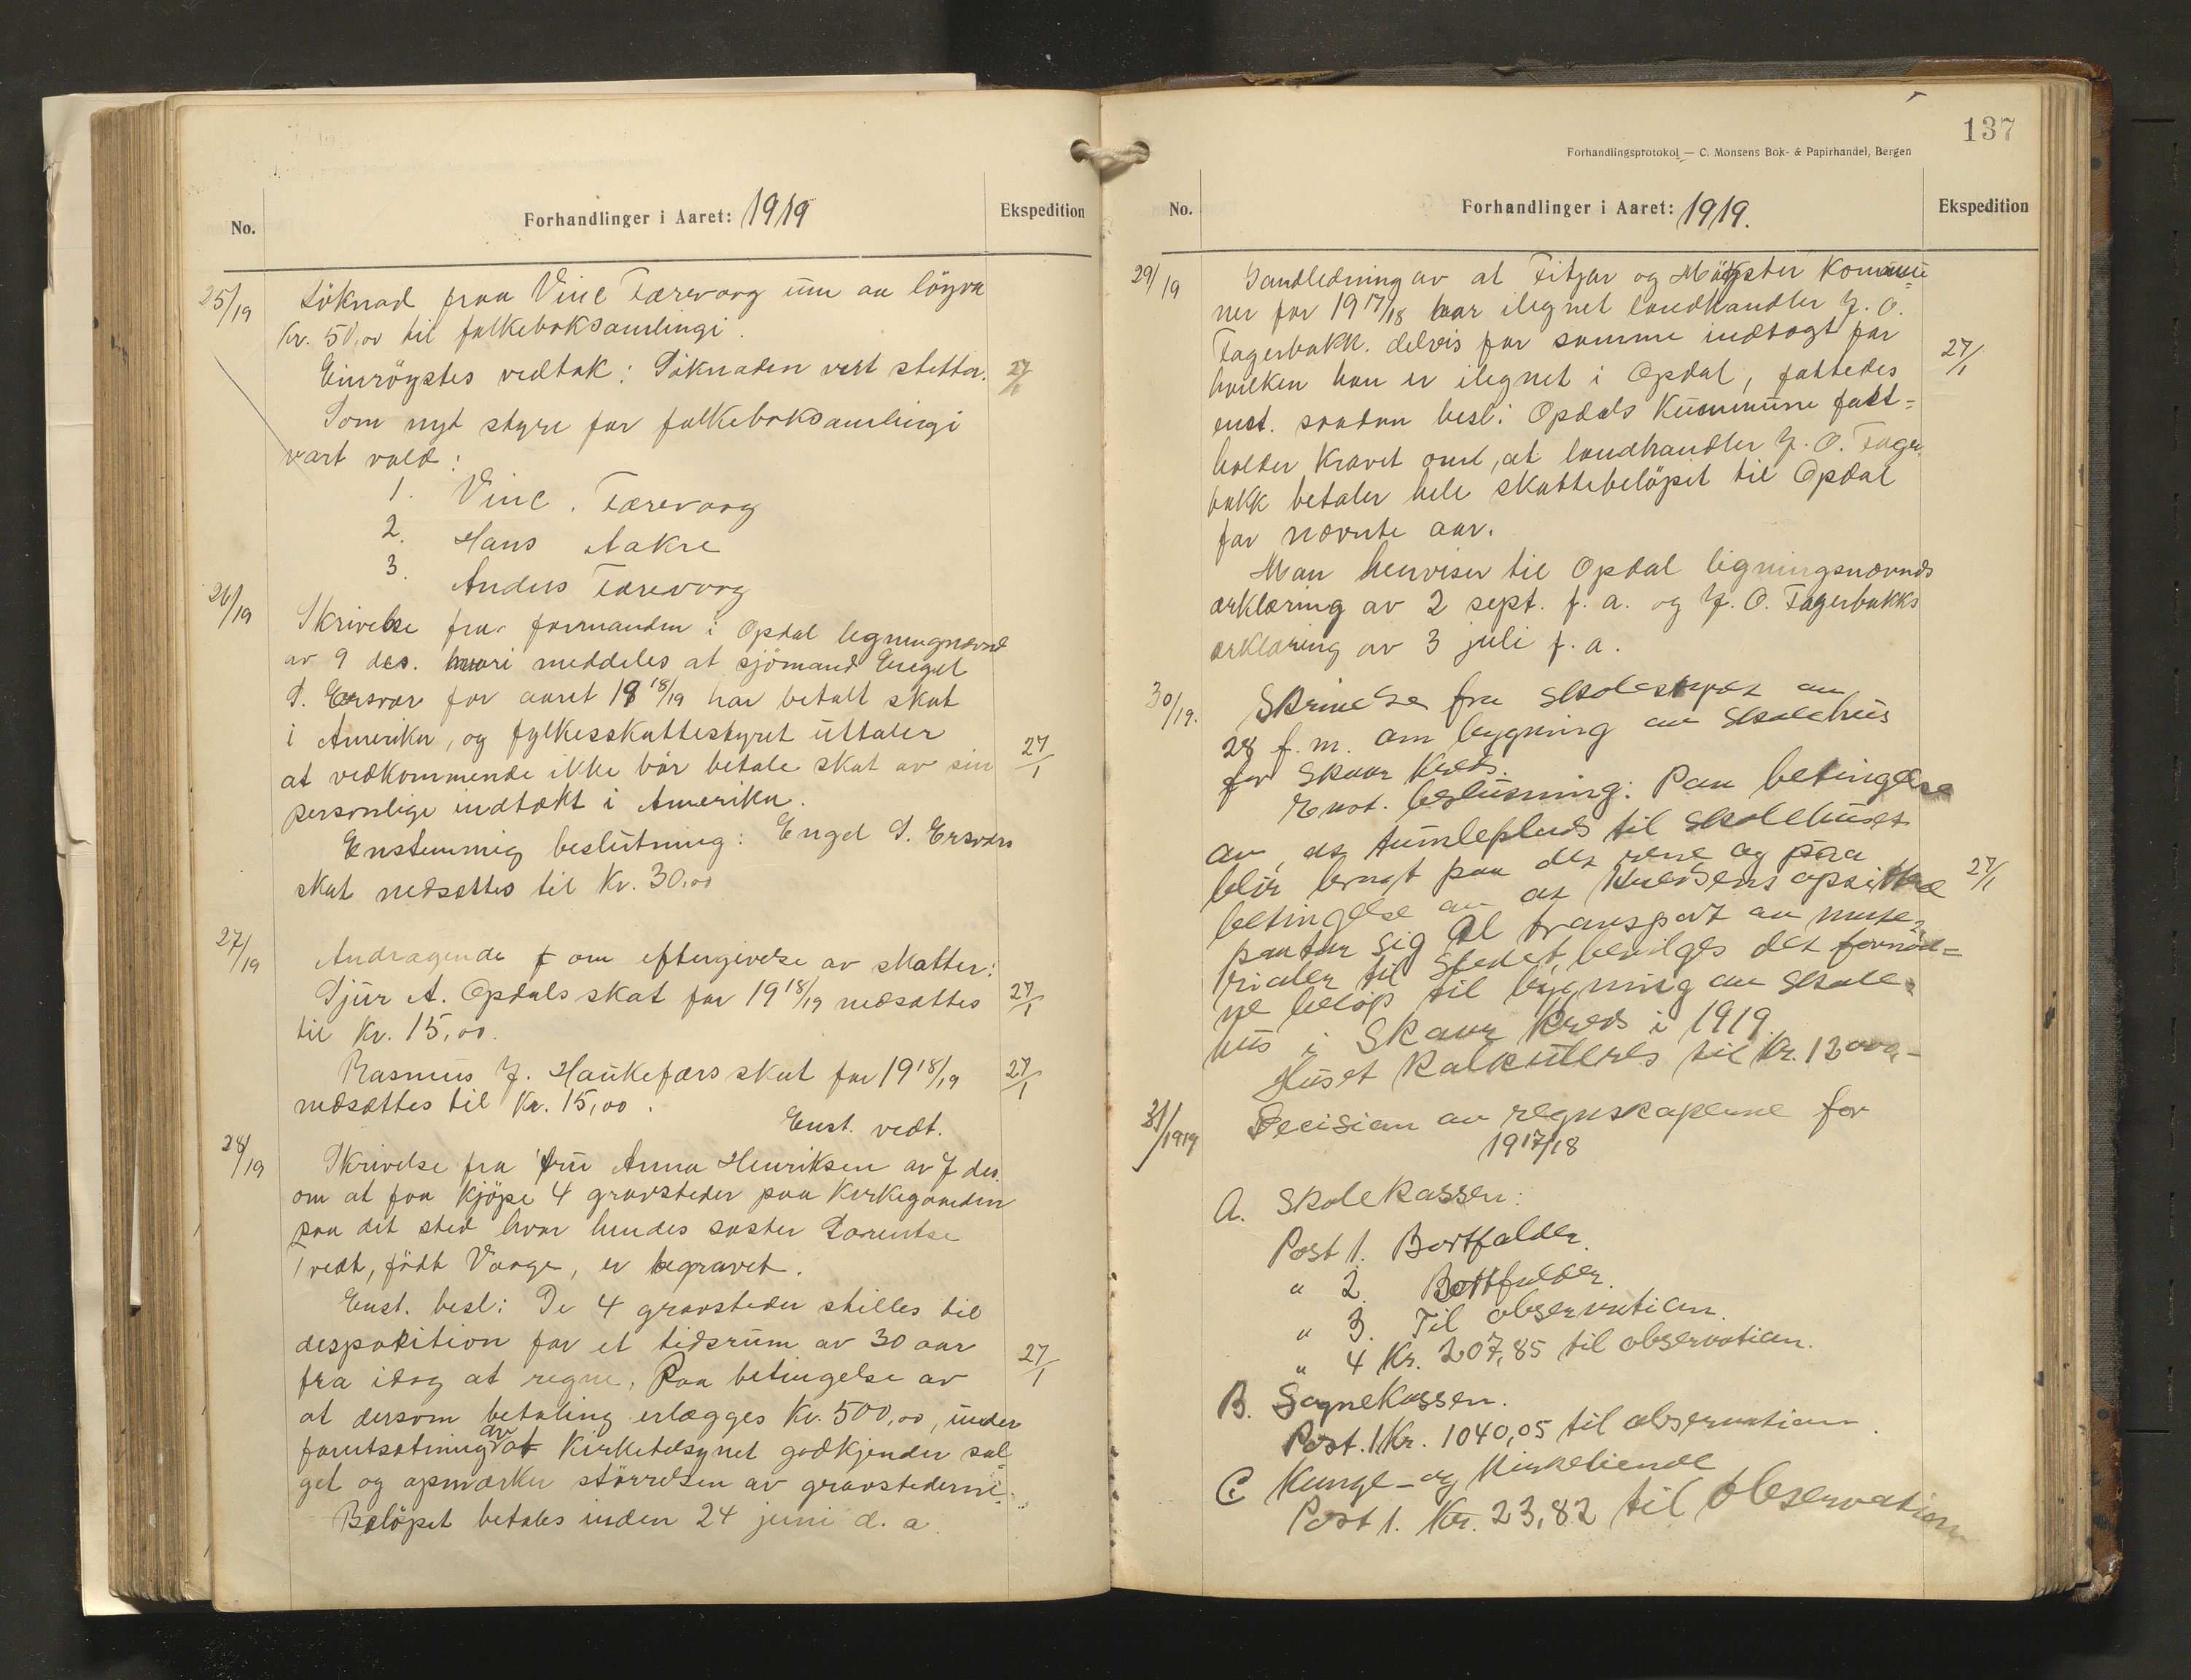 No.
Forhandlinger i Aaret: 1919
Ekspedition
25/19
Söknad fraa Vinc Færevaag um aa löyva
Kr. 50,00 til folkeboksamlingi.
Einröystes vedtak: Söknaden vert stetta.
27/1
Som nyt styre for folkeboksamlingi
vart vald:
1. Vinc. Færevaag
2. Hans Aakre
3. Anders Færevaag
26/19
Skrivelse fra formanden i Opdal ligningsnævnd
av 9 des. hvori meddeles at sjömand Engel
S. Ersvær for aaret 1918/19 har betalt skat
i Amerika, og fylkesskattestyret uttaler
27/1
at vedkommende ikke bör betale skat av sin
personlige indtækt i Amerika.
Enstemmig beslutning: Engel S. Ersværs
skat nedsættes til Kr. 30,00
27/19
Andragende om eftergivelse av skatter:
Sjur A. Opdals skat for 1918/19 nedsættes
27/1
til Kr. 15,00.
Rasmus J. Haukefærs skat for 1918/19
27/1
nedsættes til Kr. 15,00.
Enst. vedt.
28/19
Skrivelse fra fru Anna Henriksen av 7 des.
om at faa kjöpe 4 gravsteder paa Kirkegaarden
paa det sted hvor hendes søster Dorentse
Tvedt, födt Vaage, er begravet.
Enst. besl: De 4 gravsteder stilles til
desposition for et tidsrum av 30 aar
27/1
fra idag at regne, Paa betingelse av
at dersom betaling erlægges Kr. 500,00, under
forutsætning av at Kirketilsynet godkjender sal-
get og opmærker störrelsen av gravstederne.
Belöpet betales inden 24 juni d. a.
137
Forhandlingsprotokol — C. Monsens Bok- & Papirhandel, Bergen
No.
Forhandlinger i Aaret: 1919.
Ekspedition
29/19
I andledning av at Fitjar og Mögster Kommu=
ner for 1917/18 har ilegnet landhandler J. O.
Fagerbakk. delvis for samme indtægt for
27/1
hvilken han er ilegnet i Opdal, fattedes
enst. saadan besl: Opdals Kummune fast=
holder kravet om, at landhandler J. O. Fager
bakk betaler hele skattebelöpet til Opdal
for nævnte aar.
Man henviser til Opdal ligningsnævnds
ærklæring av 2 sept. f. a. og J. O. Fagerbakks
ærklæring av 3 juli f. a.
30/19.
Skrivelse fra Skolestyret av
28 f. m. om bygning av Skolehus
for Skaar Kreds.
Enst. beslutning: Paa betingelse
av, at tumleplads til Skolehuset
blir brugt paa det rene og paa
27/1
betingelse av at Kredsens opsittere
paatar sig al transport av mate=
rialer til Stedet, bevilges det fornöd=
ne belöp til bygning av Skole=
hus i Skaar Kreds i 1919.
Huset kalkuleres til Kr. 12000,-
31/1919
Decision av regnskaperne for
1917/18
A. Skolekassen:
Post 1. Bortfalder.
" 2. Bortfalder.
" 3. Til observation.
" 4 Kr. 207,85 til observation.
B. Sognekassen.
Post. 1 Kr. 1040,05 til observation.
C. Konge- og Kirketiende
Post 1. Kr. 23,82 til observation